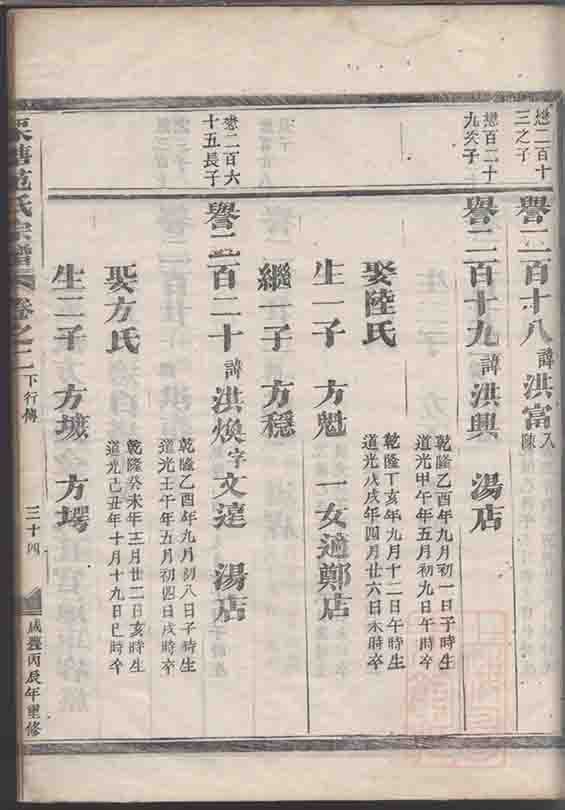 懋二百十
三之子
譽二百十八 諱洪富 入陳
懋百二十
九次子
譽二百十九 諱洪興 湯店
乾隆乙酉年九月初一日子時生
道光甲午年五月初九日午時卒
娶陸氏
乾隆丁亥年九月十二日午時生
道光丙戌年四月廿六日未時卒
生一子 方魁 一女適鄭店
繼一子 方穩
懋二百六
十五長子
譽二百二十 諱洪煥 字文達 湯店
乾隆乙酉年九月初八日子時生
道光壬午年五月初四日戌時卒
娶方氏
乾隆癸未年三月廿二日亥時生
道光己丑年十月十九日巳時卒
生二子 方墟 方堮
氏宗譜 卷之二 下行傳 三十四 咸豐丙辰年重修